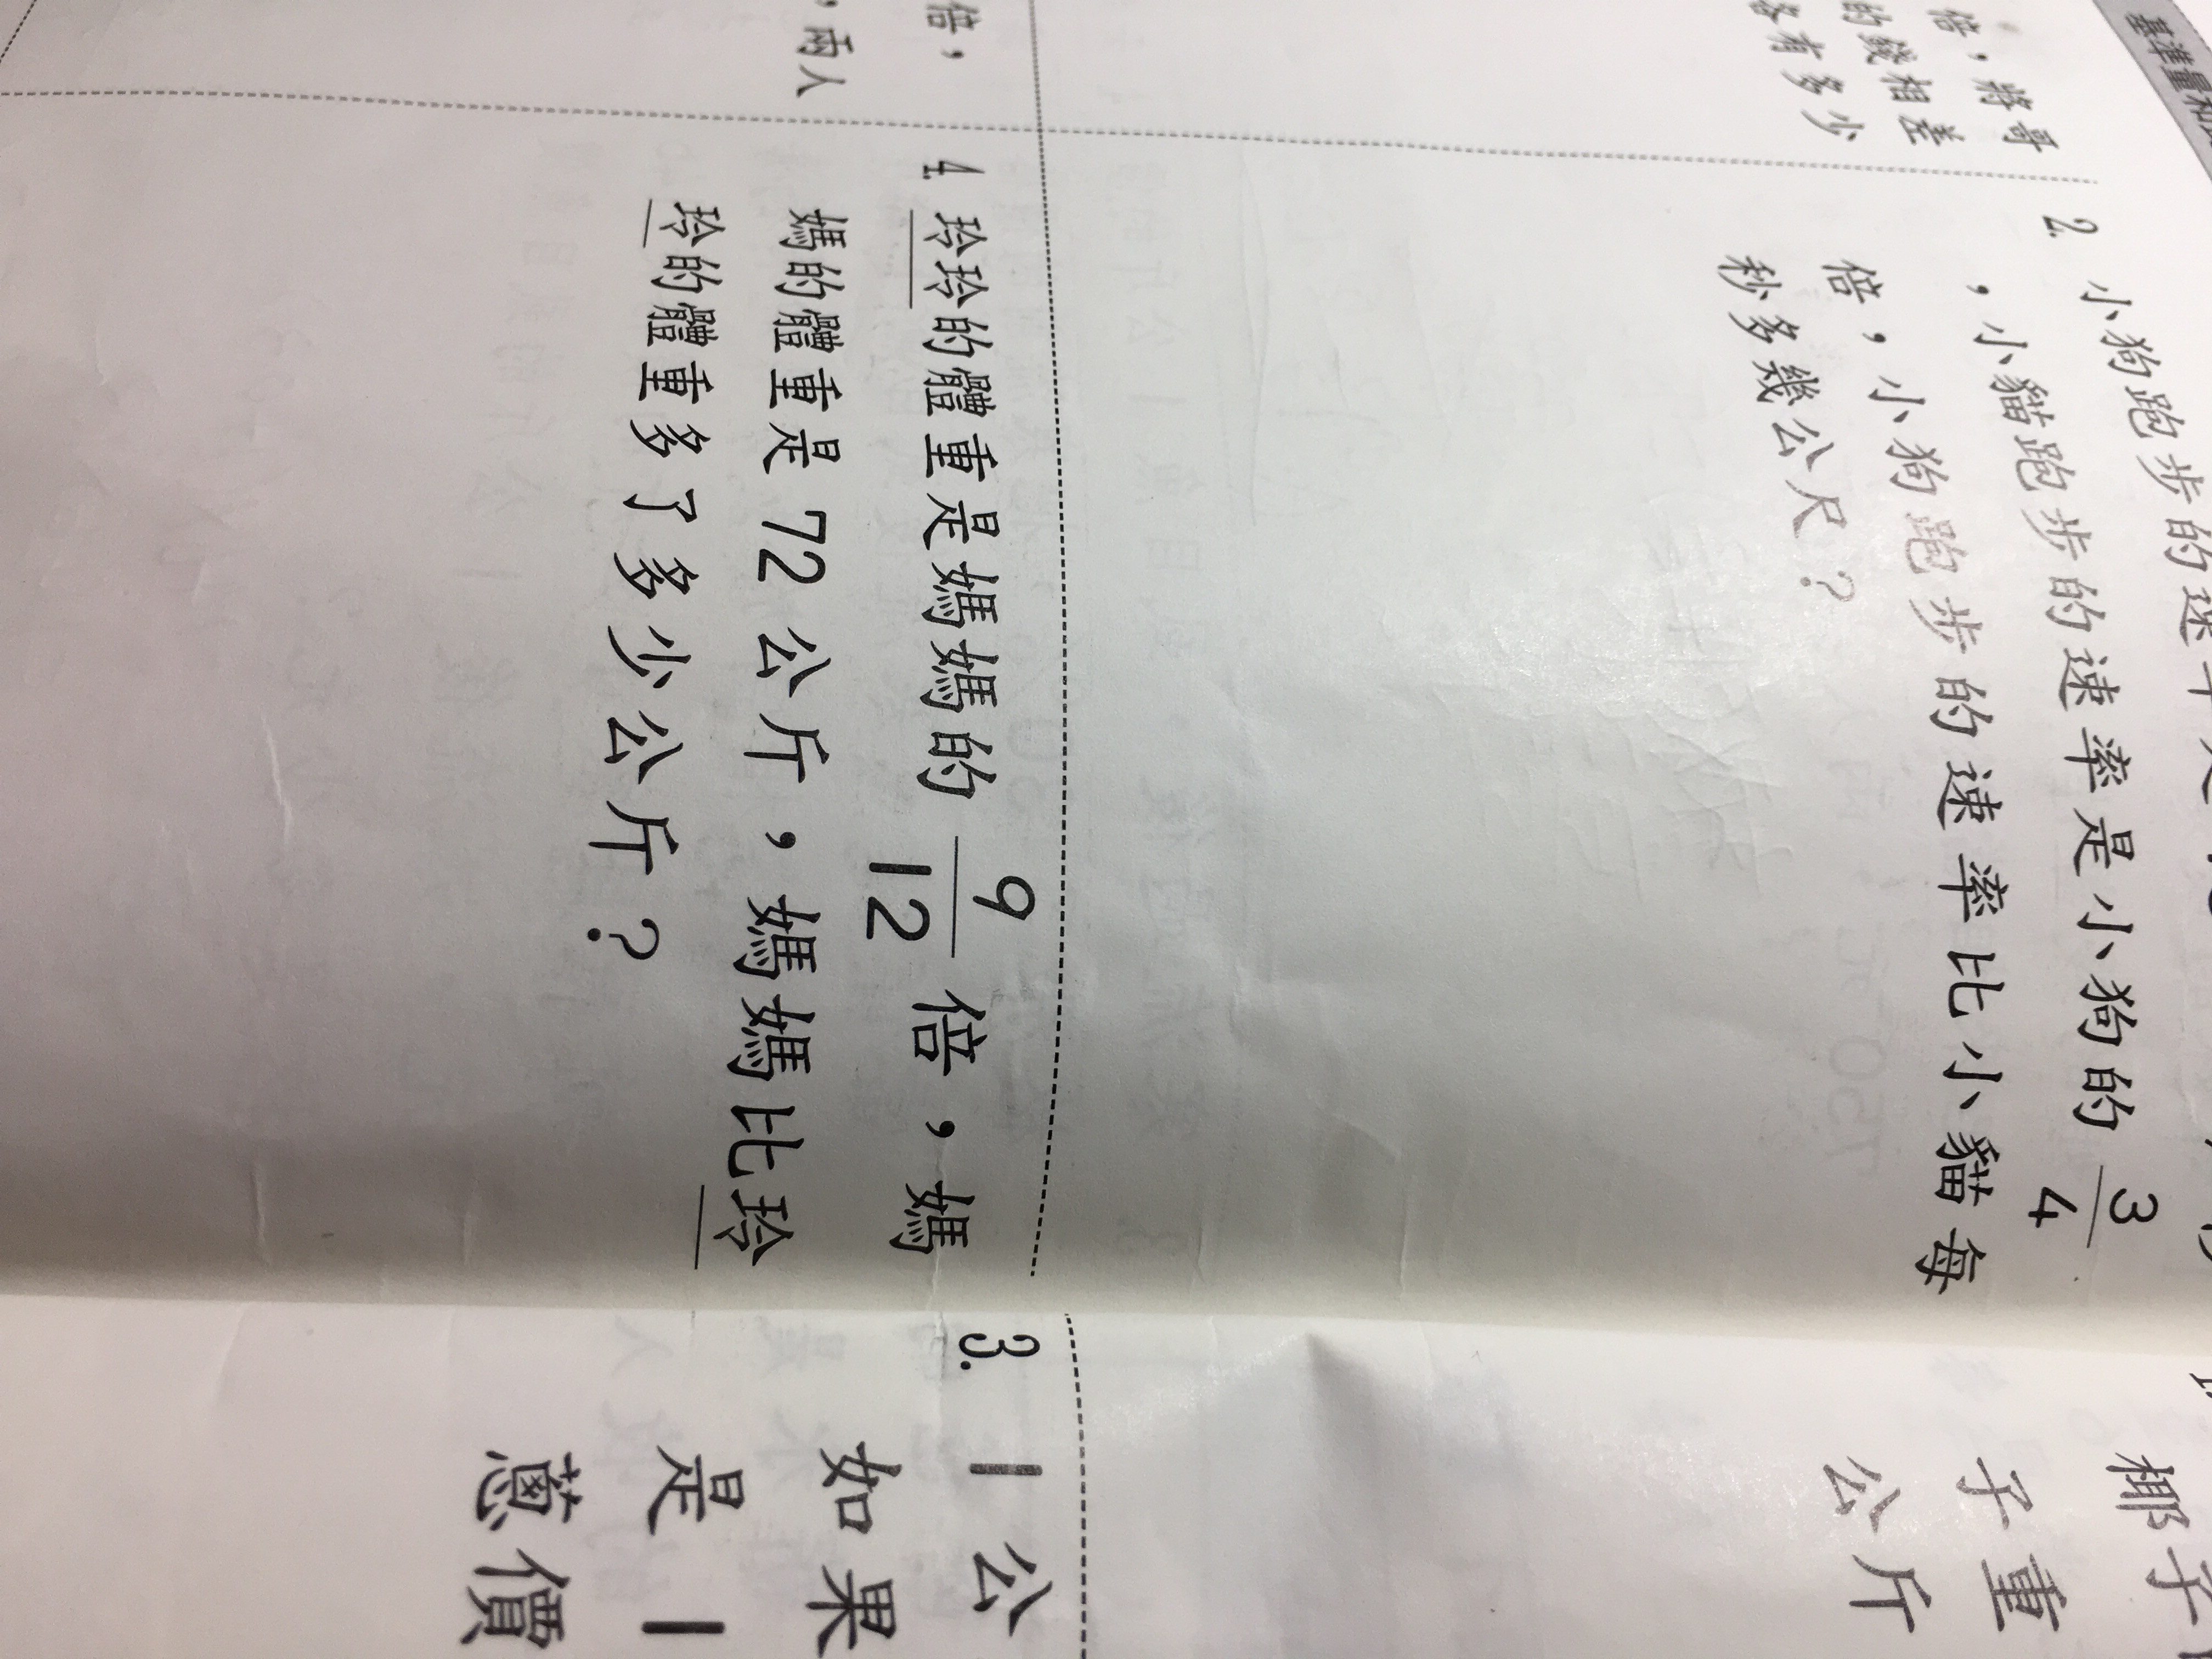 基準量和
倍，將哥
的錢相差
各有多少
2. 小狗跑步的速率是
，小貓跑步的速率是小狗的 3/4
倍，小狗跑步的速率比小貓每
秒多幾公尺？
倍，
，兩人
4. 玲玲的體重是媽媽的 9/12 倍，媽
媽的體重是 72 公斤，媽媽比玲
玲的體重多了多少公斤？
椰子
子重
公斤
3. 1 公
如果
是 1
蔥價